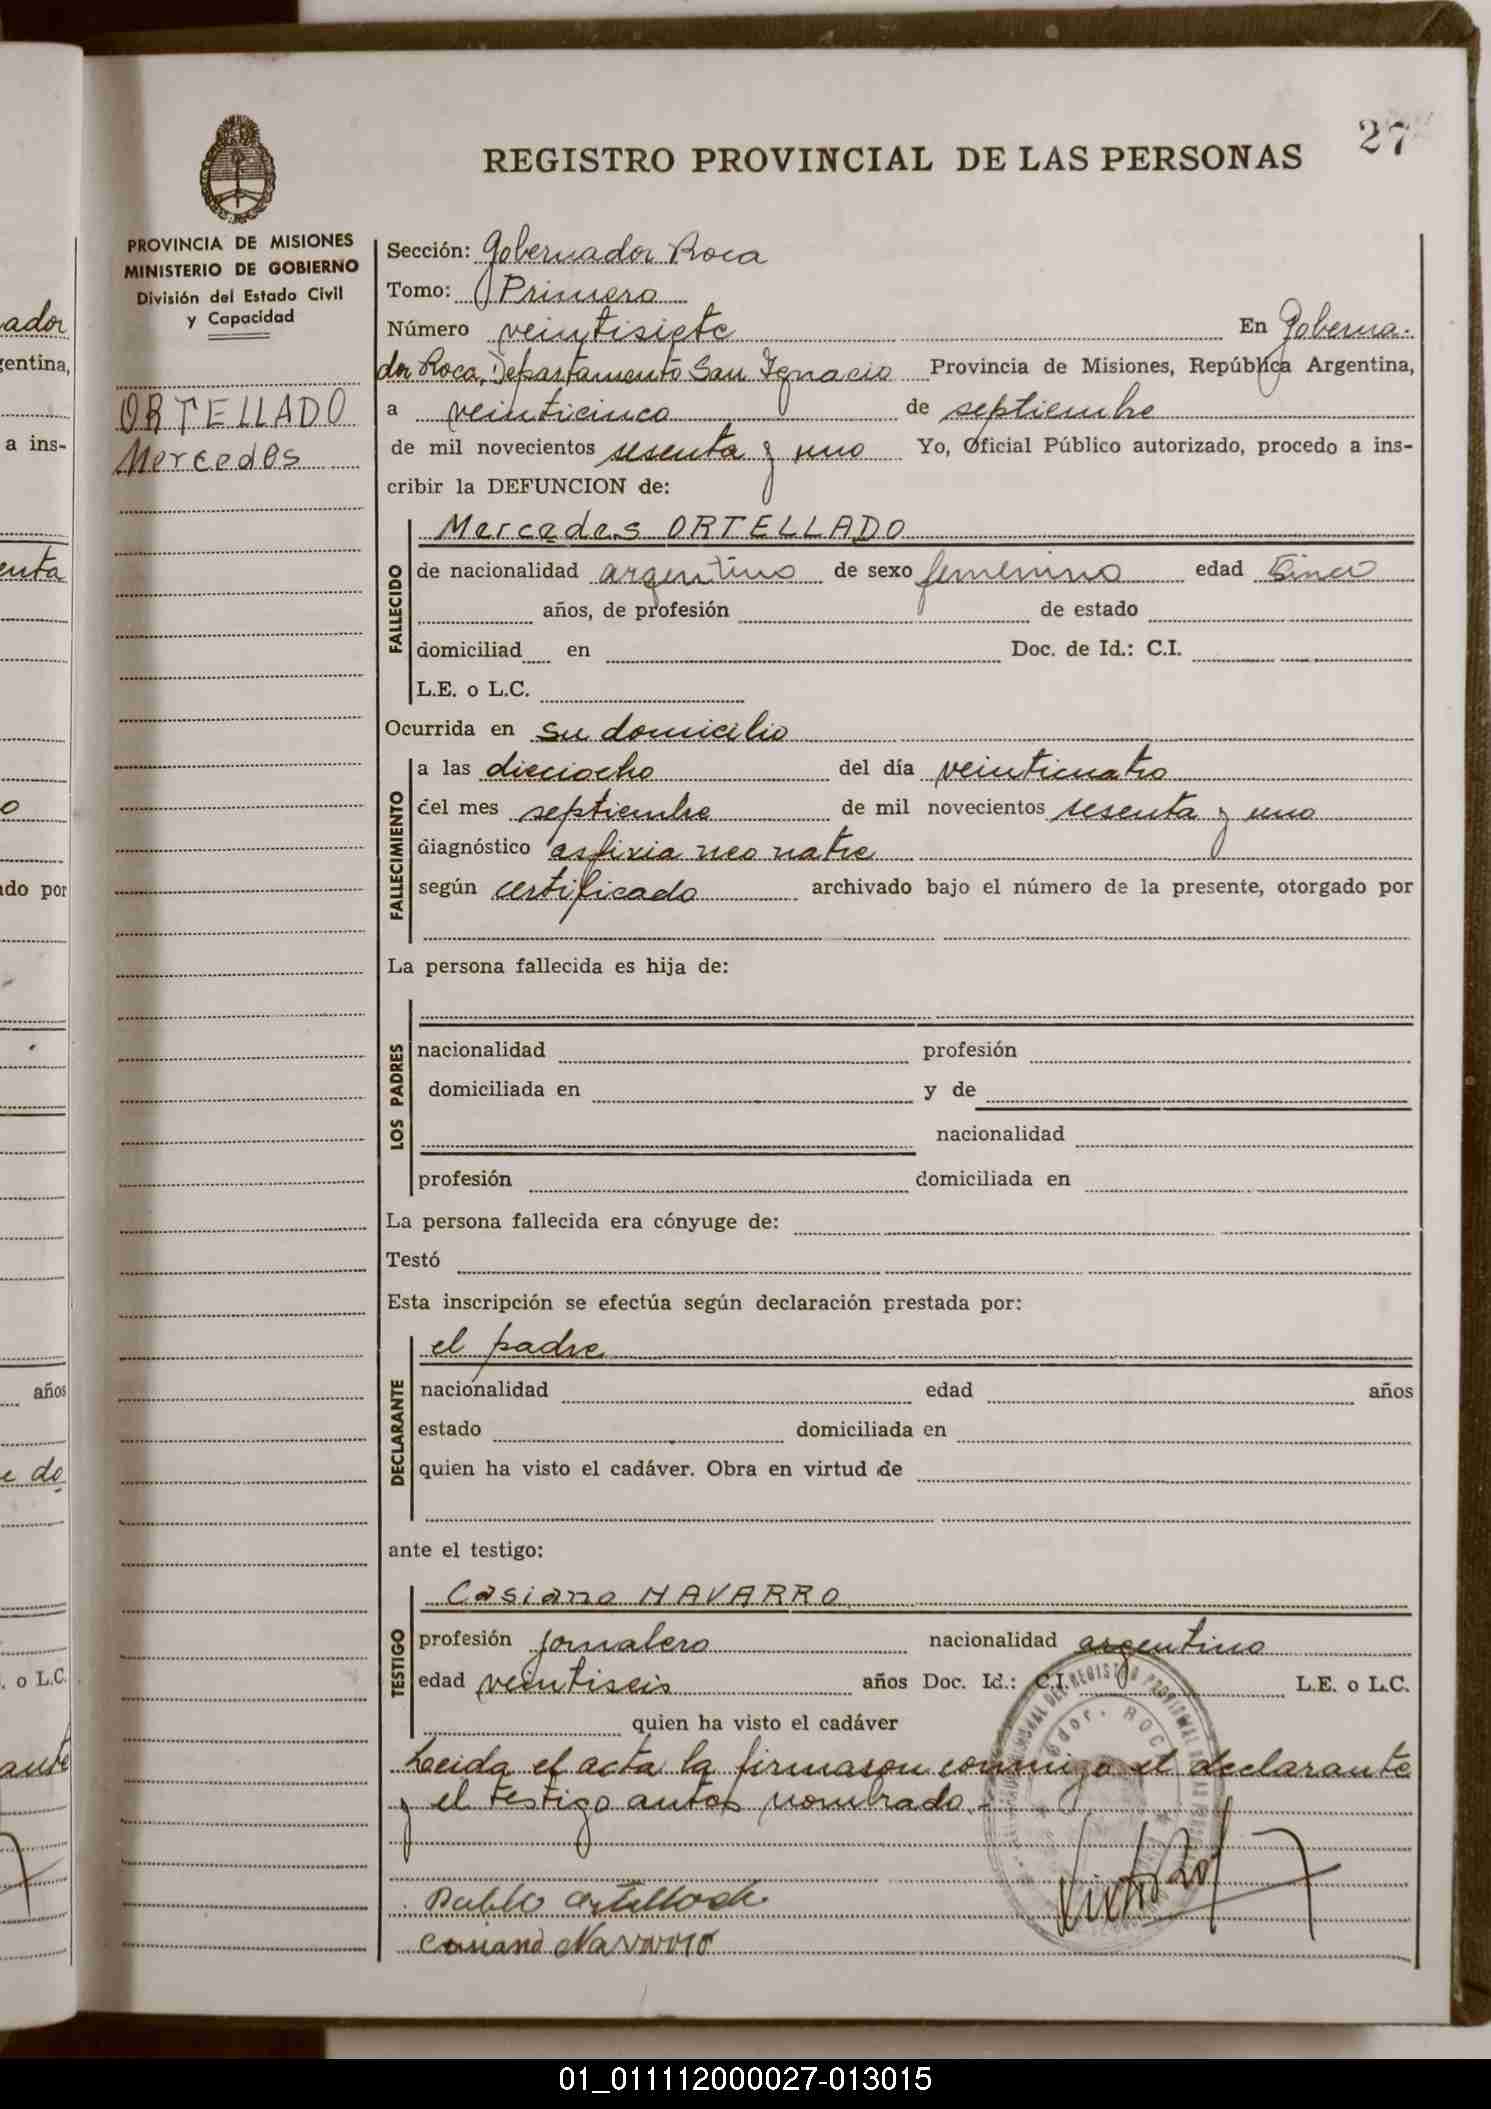 27
REGISTRO PROVINCIAL DE LAS PERSONAS
PROVINCIA DE MISIONES
MINISTERIO DE GOBIERNO
División del Estado Civil
y Capacidad
ORTELLADO
Mercedes
Sección: Gobernador Roca
Tomo: Primero
Número veintisiete En Goberna-
dor Roca, Departamento San Ignacio Provincia de Misiones, República Argentina,
a veinticinco de septiembre
de mil novecientos sesenta y uno Yo, Oficial Público autorizado, procedo a ins-
cribir la DEFUNCION de:
Mercedes ORTELLADO
FALLECIDO
de nacionalidad argentino de sexo femenino edad cinco
años, de profesión de estado
domiciliad en Doc. de Id.: C.I.
L.E. o L.C.
Ocurrida en su domicilio
FALLECIMIENTO
a las dieciocho del día veinticuatro
del mes septiembre de mil novecientos sesenta y uno
diagnóstico asfixia neo natre
según certificado archivado bajo el número de la presente, otorgado por
La persona fallecida es hija de:
LOS PADRES
nacionalidad profesión
domiciliada en y de
nacionalidad
profesión domiciliada en
La persona fallecida era cónyuge de:
Testó
Esta inscripción se efectúa según declaración prestada por:
el padre
DECLARANTE
nacionalidad edad años
estado domiciliada en
quien ha visto el cadáver. Obra en virtud de
ante el testigo:
Casiano NAVARRO
TESTIGO
profesión jornalero nacionalidad argentino
edad veintiseis años Doc. Id.: C.I. L.E. o L.C.
quien ha visto el cadáver
Leida el acta la firmaron conmigo el declarante
y el testigo antes nombrado.-
Pablo Ortellado
Casiano Navarro
ador
gentina,
a ins-
enta
o
ado por
años
e do
. o L.C.
ante
01_011112000027-013015